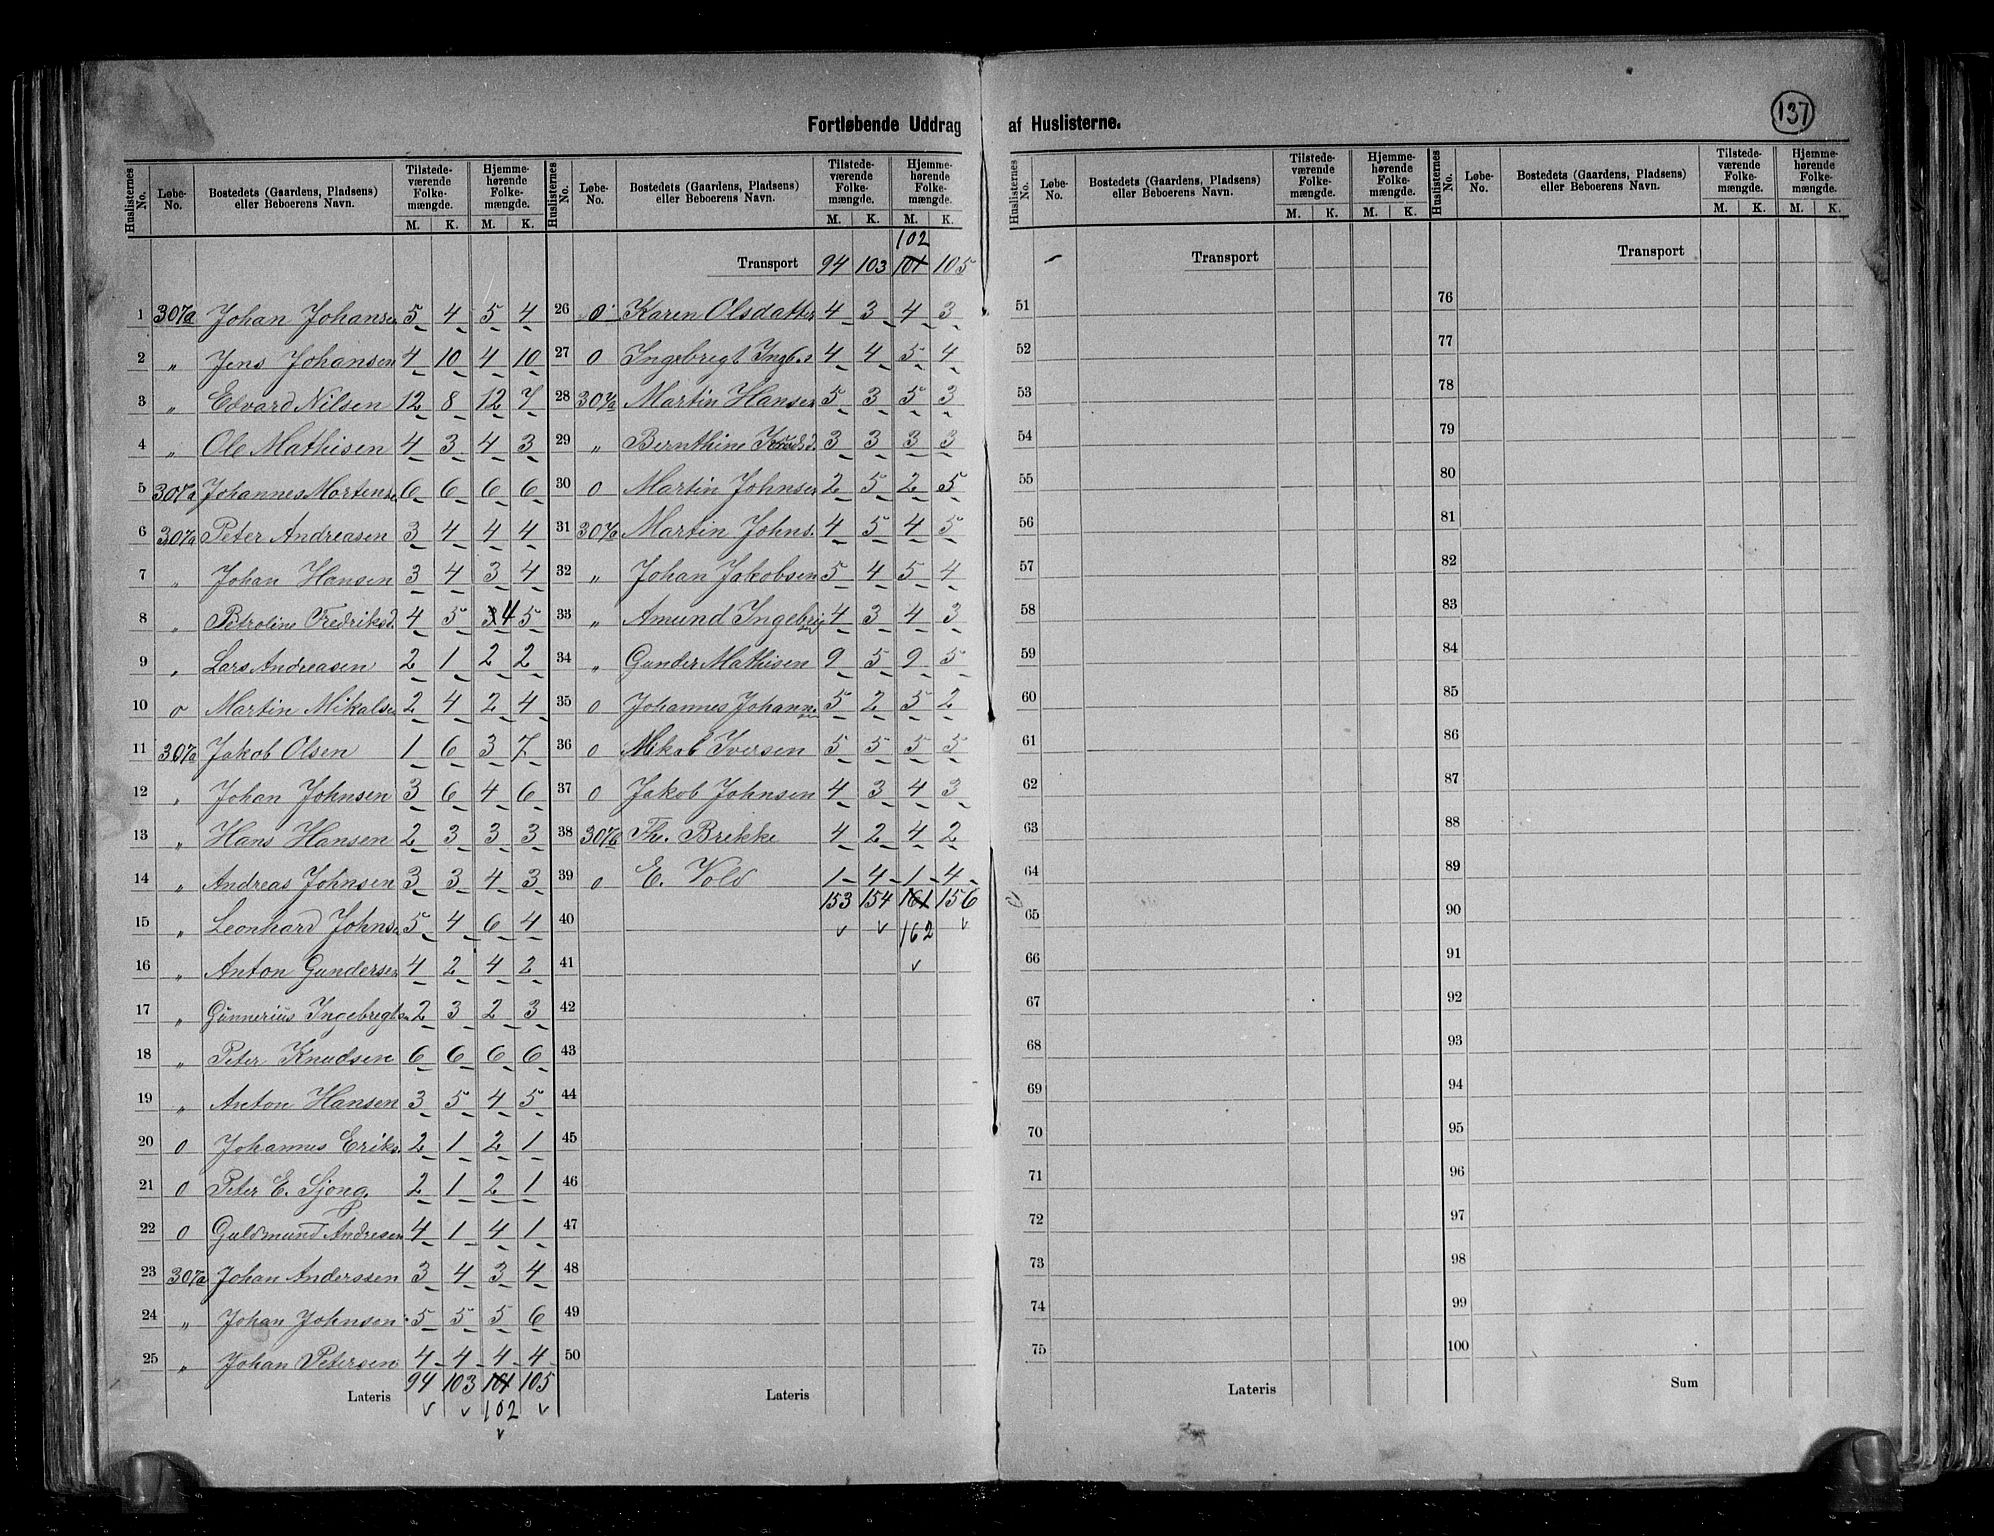 137
Fortløbende Uddrag af Huslisterne.
Huslisternes No. Løbe-No. Bostedets (Gaardens, Pladsens) eller Beboerens Navn. Tilstede-værende Folke-mængde. M. K. Hjemme-hørende Folke-mængde. M. K.
1 307a Johan Johansen 5 4 5 4
2 „ Jens Johansen 4 10 4 10
3 „ Edvard Nilsen 12 8 12 7
4 „ Ole Mathisen 4 3 4 3
5 307a Johannes Mortense 6 6 6 6
6 307a Peter Andreasen 3 4 4 4
7 „ Johan Hansen 3 4 3 4
8 „ Petroline Fredriksd. 4 5 3 4 5
9 „ Lars Andreasen 2 1 2 2
10 o Martin Mikalse 2 4 2 4
11 307a Jakob Olsen 1 6 3 7
12 „ Johan Johnsen 3 6 4 6
13 „ Hans Hansen 2 3 3 3
14 „ Andreas Johnsen 3 3 4 3
15 „ Leonhard Johnse 5 4 6 4
16 „ Anton Gundersen 4 2 4 2
17 „ Gunnerius Ingebregtsn 2 3 2 3
18 „ Peter Knudsen 6 6 6 6
19 „ Anton Hansen 3 5 4 5
20 0 Johannes Eriks. 2 1 2 1
21 0 Peter E. Sjong. 2 1 2 1
22 0 Guldmund Andresen 4 1 4 1
23 307a Johan Anderssen 3 4 3 4
24 „ Johan Johnsen 5 5 5 6
25 „ Johan Petersen 4 4 4 4
Lateris 94 103 101 105
102
Huslisternes No. Løbe-No. Bostedets (Gaardens, Pladsens) eller Beboerens Navn. Tilstede-værende Folke-mængde. M. K. Hjemme-hørende Folke-mængde. M. K.
102
Transport 94 103 101 105
26 0 Karen Olsdatter 4 3 4 3
27 0 Ingebrigt Ingb.s 4 4 5 4
28 307a Martin Hansen 5 3 5 3
29 „ Bernthine Knudsd. 3 3 3 3
30 0 Martin Johnsen 2 5 2 5
31 307a Martin Johns. 4 5 4 5
32 „ Johan Jakobsen 5 4 5 4
33 „ Amund Ingebrig 4 3 4 3
34 „ Gunder Mathisen 9 5 9 5
35 0 Johannes Johann.sen 5 2 5 2
36 0 Mikal Iversen 5 5 5 5
37 0 Jakob Johnsen 4 3 4 3
38 307b Th. Brekke 4 2 4 2
39 0 E. Vold 1 4 1 4
153 154 161 156
40 162
41
42
43
44
45
46
47
48
49
50
Lateris
Huslisternes No. Løbe-No. Bostedets (Gaardens, Pladsens) eller Beboerens Navn. Tilstede-værende Folke-mængde. M. K. Hjemme-hørende Folke-mængde. M. K.
Transport
51
52
53
54
55
56
57
58
59
60
61
62
63
64
65
66
67
68
69
70
71
72
73
74
75
Lateris
Huslisternes No. Løbe-No. Bostedets (Gaardens, Pladsens) eller Beboerens Navn. Tilstede-værende Folke-mængde. M. K. Hjemme-hørende Folke-mængde. M. K.
Transport
76
77
78
79
80
81
82
83
84
85
86
87
88
89
90
91
92
93
94
95
96
97
98
99
100
Sum